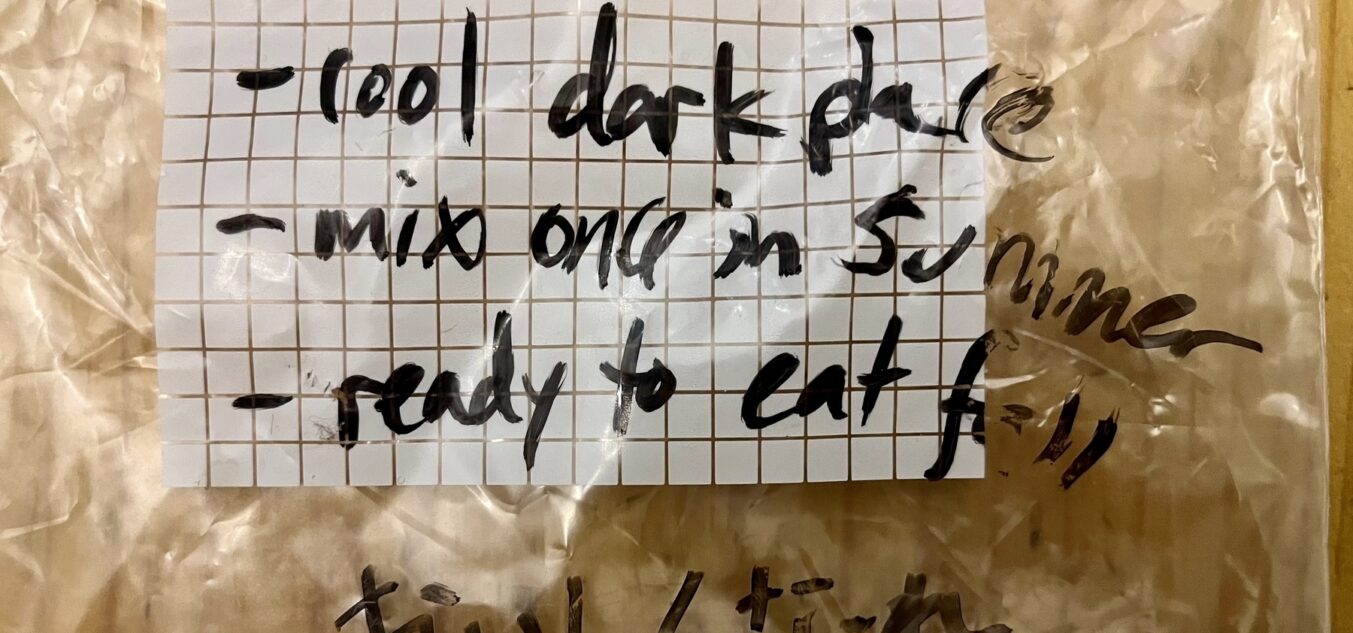 - cool dark place
- mix once in summer
- ready to eat fall